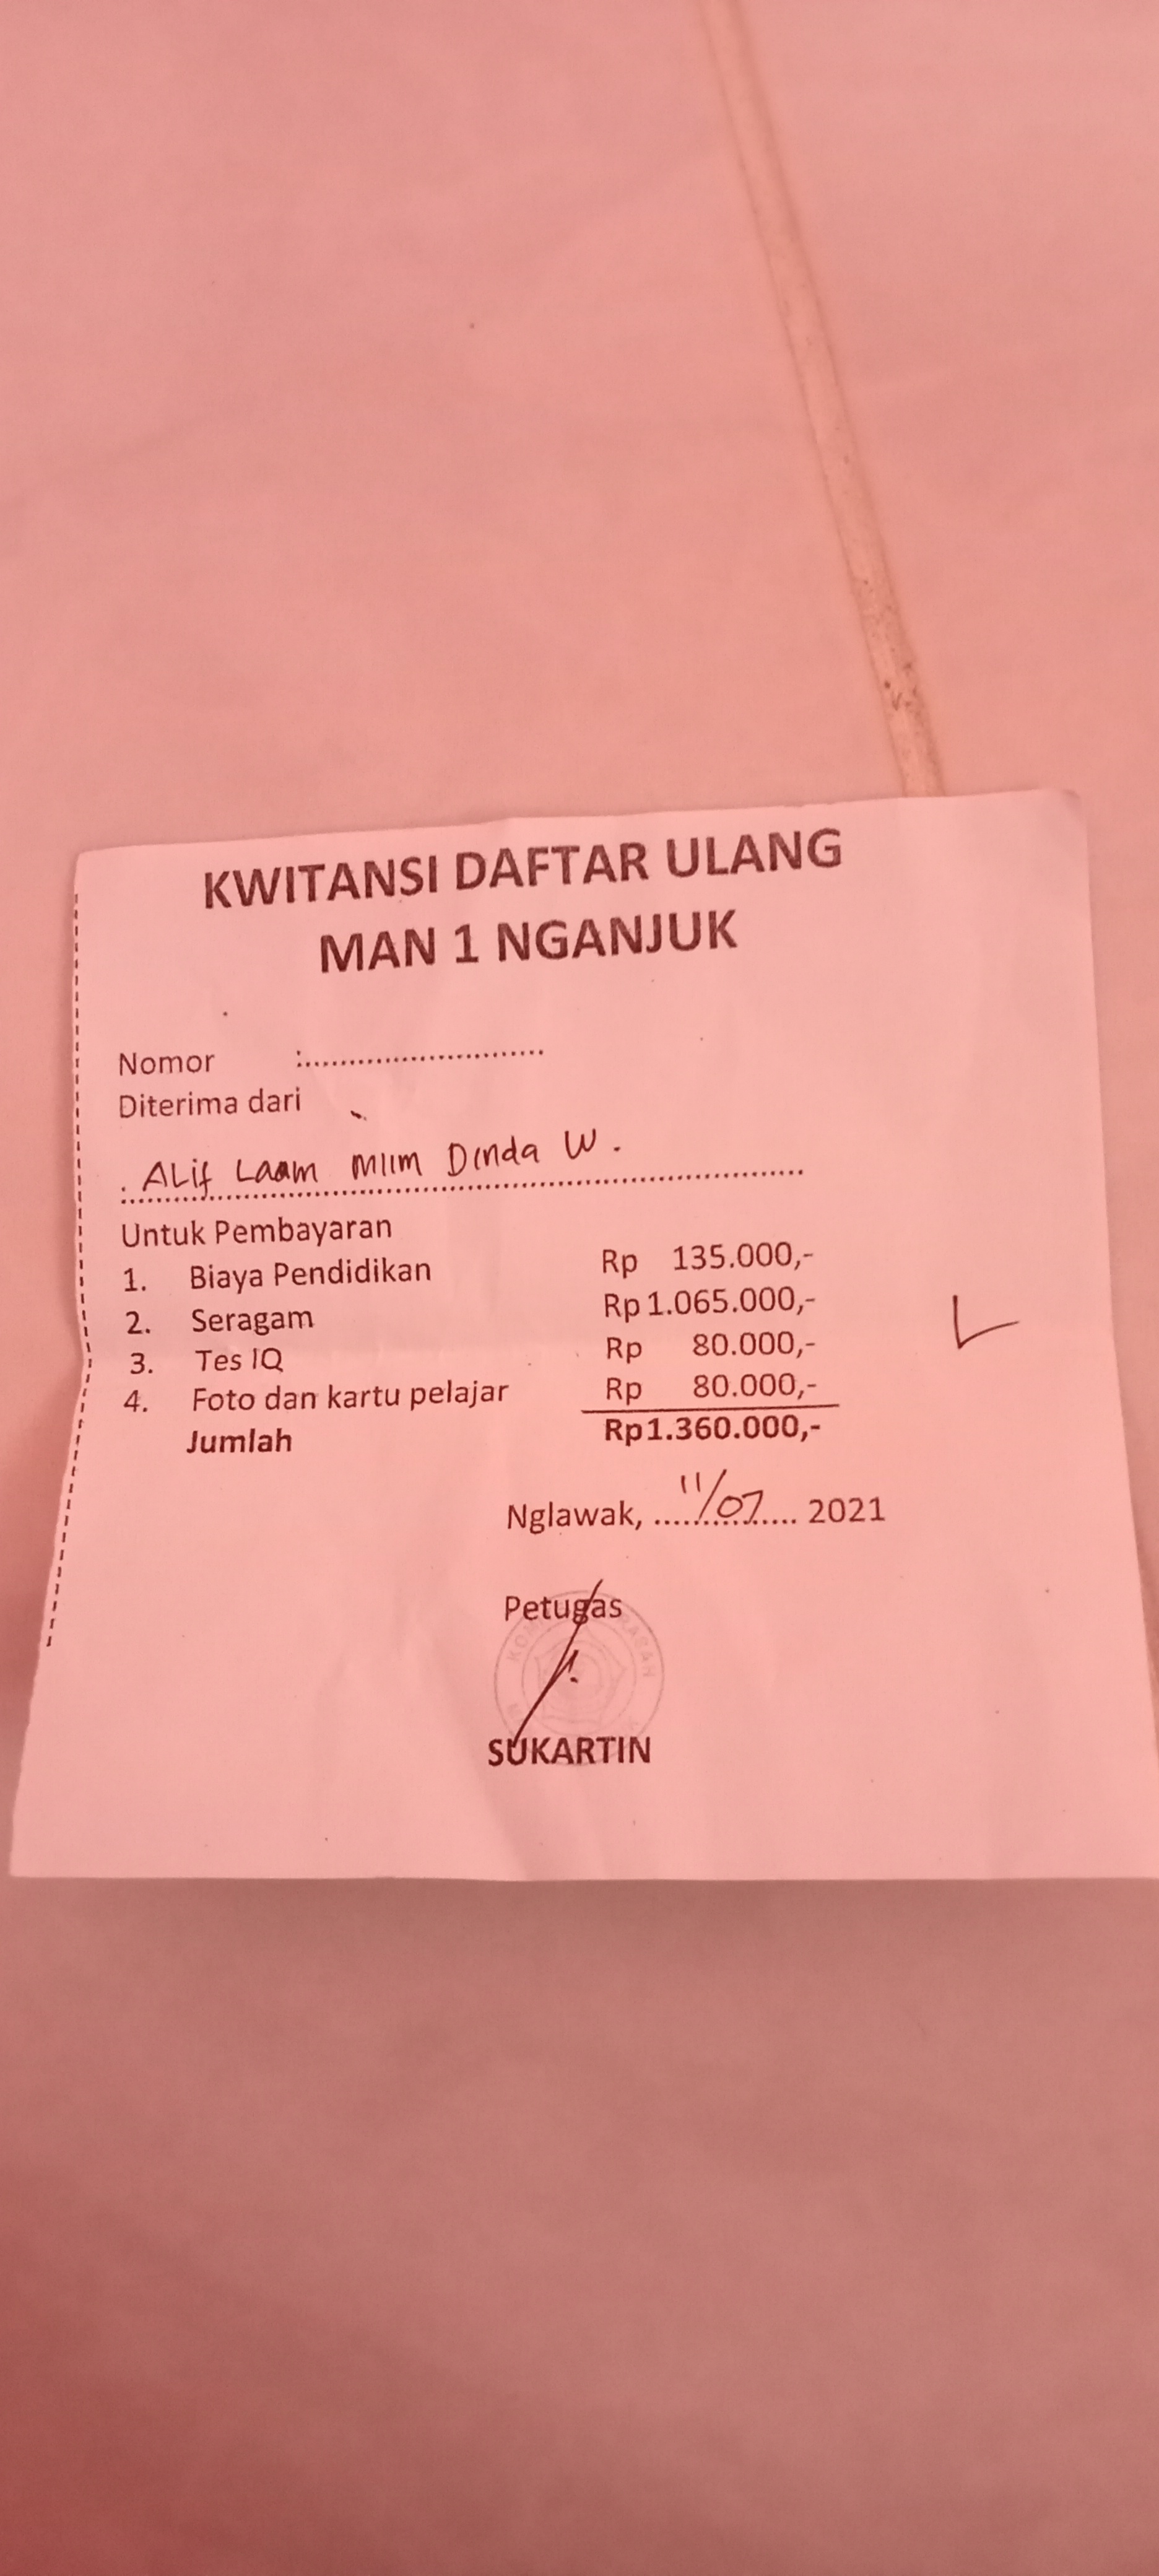 KWITANSI DAFTAR ULANG
MAN 1 NGANJUK
Nomor :............................
Diterima dari
. ALif Laam Miim Dinda W .
Untuk Pembayaran
1. Biaya Pendidikan Rp 135.000,-
2. Seragam Rp 1.065.000,-
3. Tes IQ Rp 80.000,-
4. Foto dan kartu pelajar Rp 80.000,-
Jumlah Rp1.360.000,-
Nglawak, 11/07 2021
Petugas
SUKARTIN